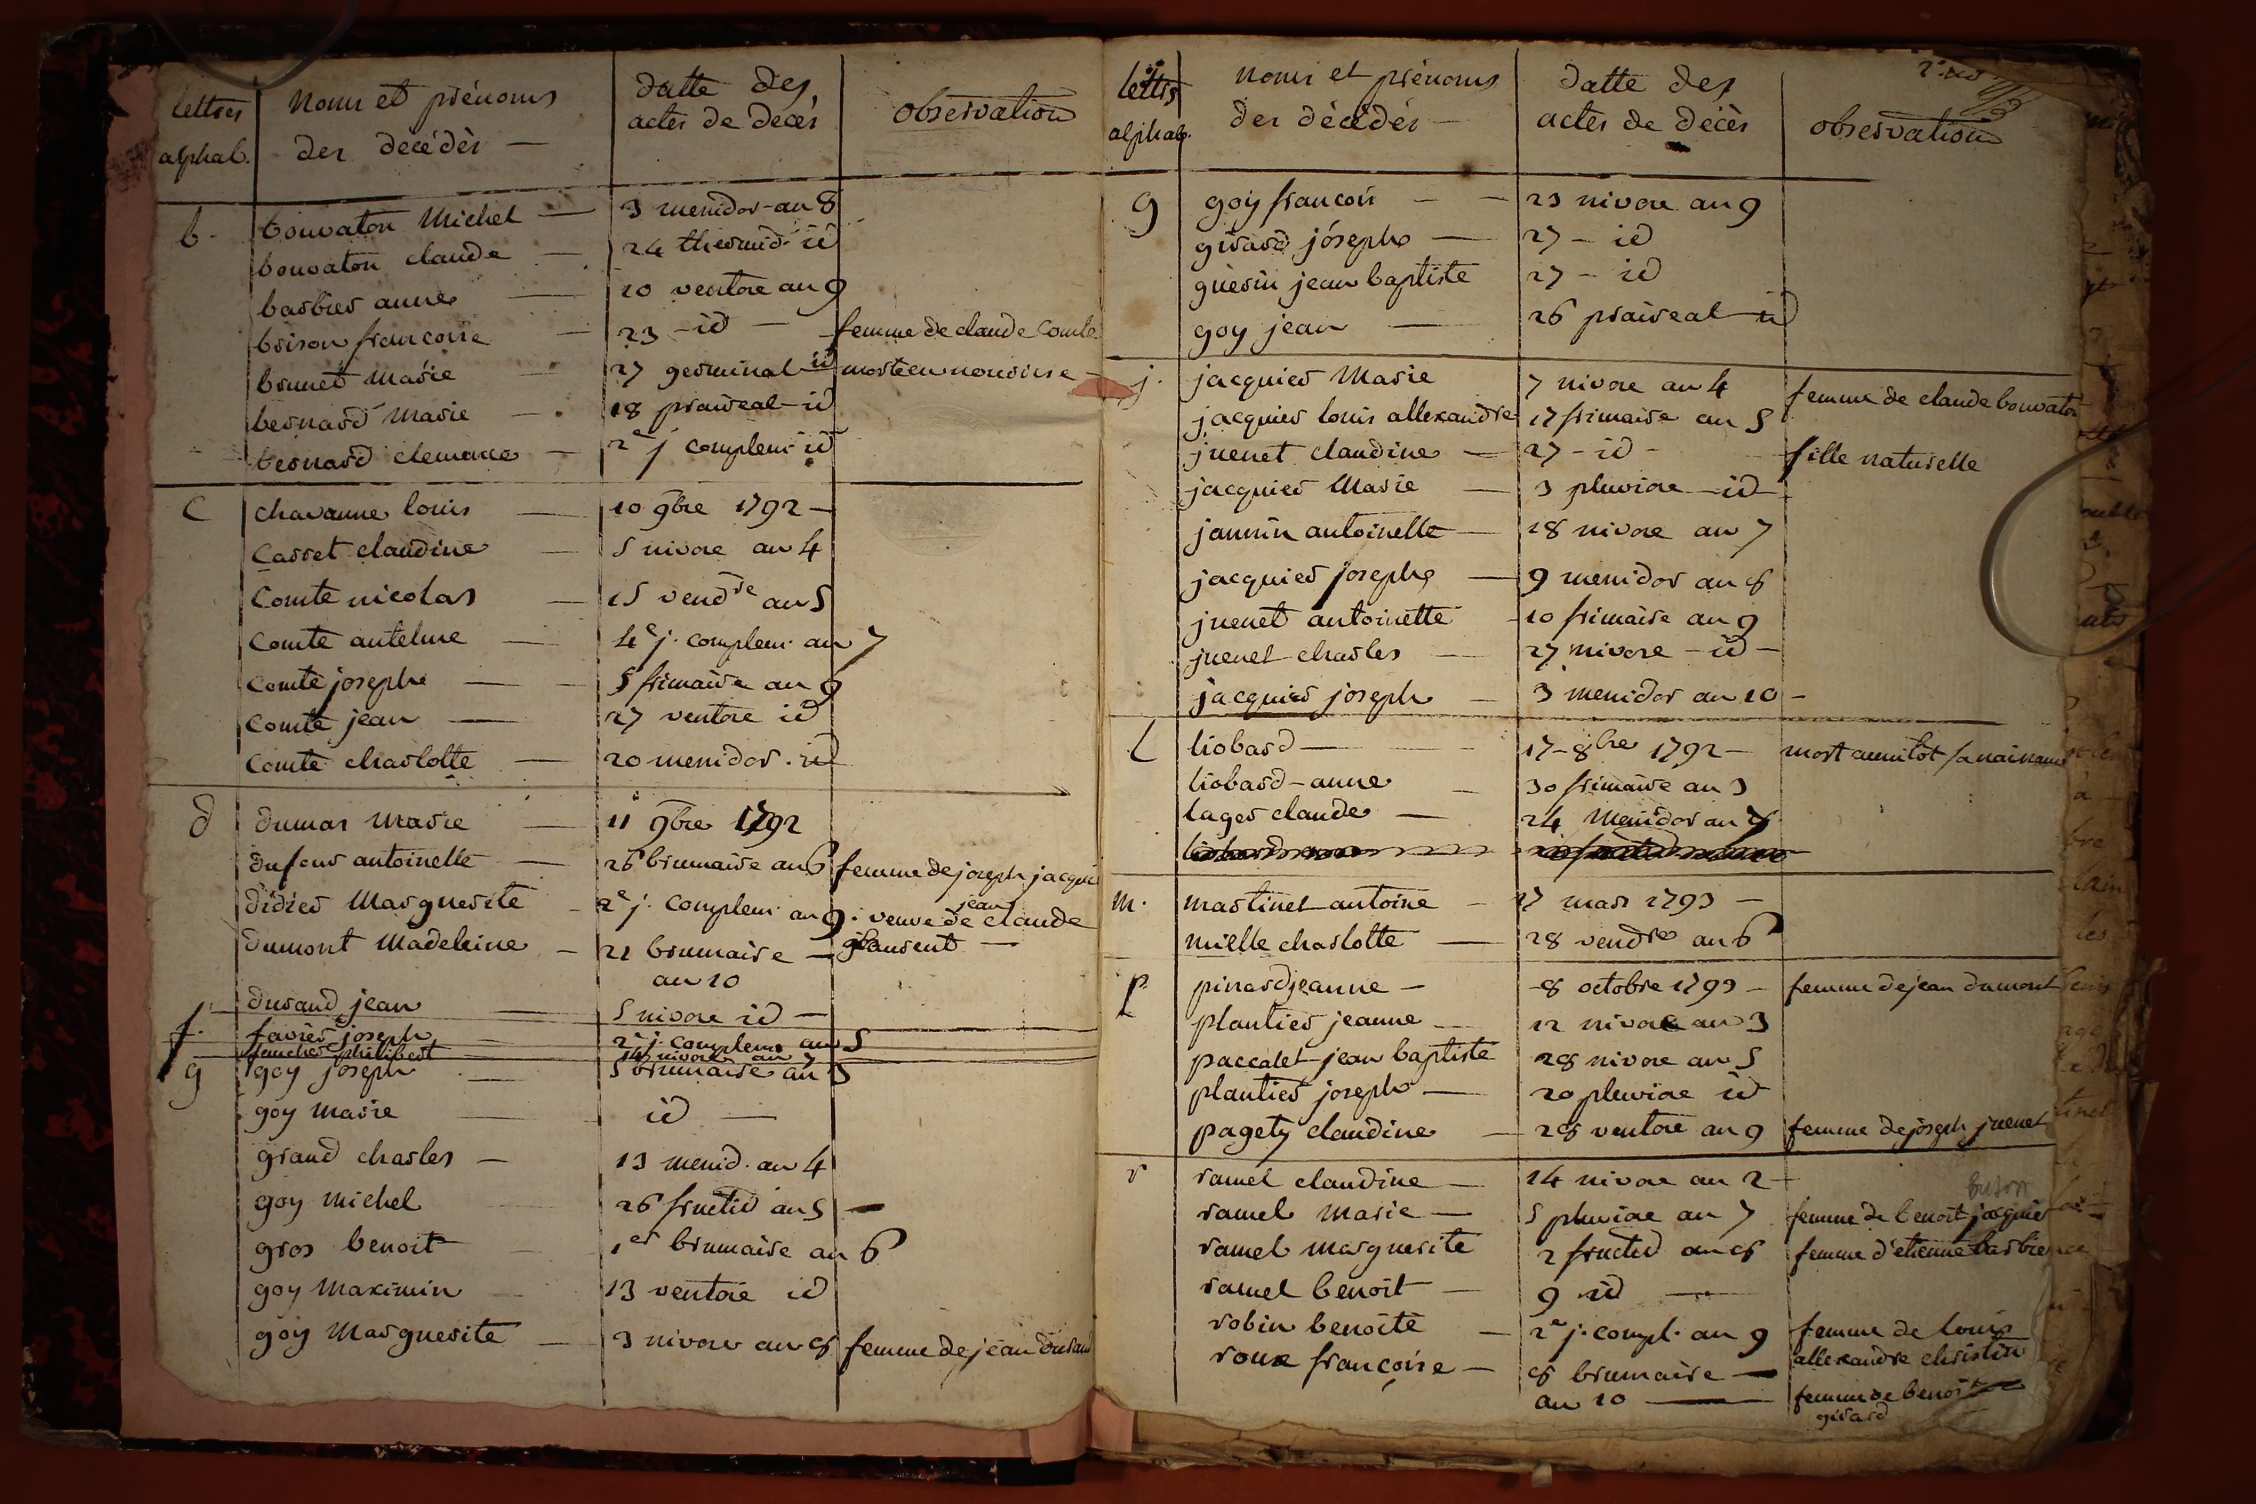 lettres alphab. noms et prénoms des décédés — datte des actes de décès observation
b. bouvaton Michel — 3 messidor an 8
bouvaton claude — 24 thermid. id
barbier anne — 10 ventose an 9
brison francoise — 23 - id — femme de claude Comte
brunet Marie — 27 germinal id morte en nourisse —
bernard Marie — 18 praireal id
bernard clemence — 2e j complem. id
c chavanne louis — 10 9bre 1792 —
Casset claudine — 5 nivose an 4
Comte nicolas — 15 vendre an 5
Comte antelme — 4e j. complem. an 7
Comte joseph — 5 frimaire an 9
Comte jean — 27 ventose id
Comte charlotte — 20 messidor. id
d dumas Marie — 11 9bre 1792
dufour antoinette — 26 brumaire an 6 femme de joseph jacquie
didier Marguerite — 2e j. complem. an 9. veuve de jean claude
dumont Madeleine — 21 brumaire —
an 10
durand jean 5 nivose id —
f. favier joseph 2e j. complem. an 5
philibert 14 nivose an 7
g goy joseph — 5 brumaire an 3
goy Marie — id —
grand charles — 13 messid. an 4
goy michel 26 fructid an 5 —
gros benoit — 1er brumaire an 6
goy maximin — 13 ventose id
goy Marguerite — 3 nivose an 8 femme de jean durand
lettrs alphab. noms et prénoms des décédés — datte des actes de décès observation
g goy francois — 23 nivose an 9
girard joseph — 27 - id
guerin jean baptiste 27 - id
goy jean — 26 praireal id
j. jacquier Marie 7 nivose an 4 femme de claude bouvaton
jacquier louis allexandre 17 frimaire an 5
juenet claudine — 27 - id - fille naturelle
jacquier Marie — 3 pluviose - id
jannin antoinette — 18 nivose an 7
jacquier joseph — 9 messidor an 8
juenet antoinette - 10 frimaire an 9
juenet charles — 27 nivose - id -
jacquier joseph — 3 messidor an 10 -
l liobard — 17 - 8bre 1792 — mort aussitot sa naissance
liobard - anne — 30 frimaire an 3
lager claude — 24 Messidor an 7
m. martinet antoine — 17 mars 1793 —
mielle charlotte — 28 vendre an 6
p pinard jeanne — 8 octobre 1793 — femme de jean dumont
plantier jeanne — 12 nivose an 3
paccalet jean baptiste 28 nivose an 5
plantier joseph — 20 pluviose id
pagety claudine — 28 ventose an 9 femme de joseph juenet
r ramel claudine — 14 nivose an 2
ramel Marie — 5 pluviose an 7 femme de benoit jacquier
ramel Marguerite 2 fructid an 8 femme d'etienne barbier
ramel benoit — 9 id —
robin benoite — 2e j. compl. an 9 femme de louis
allexandre christin
roux francoise — 8 brumaire —
an 10 — femme de benoit
girard